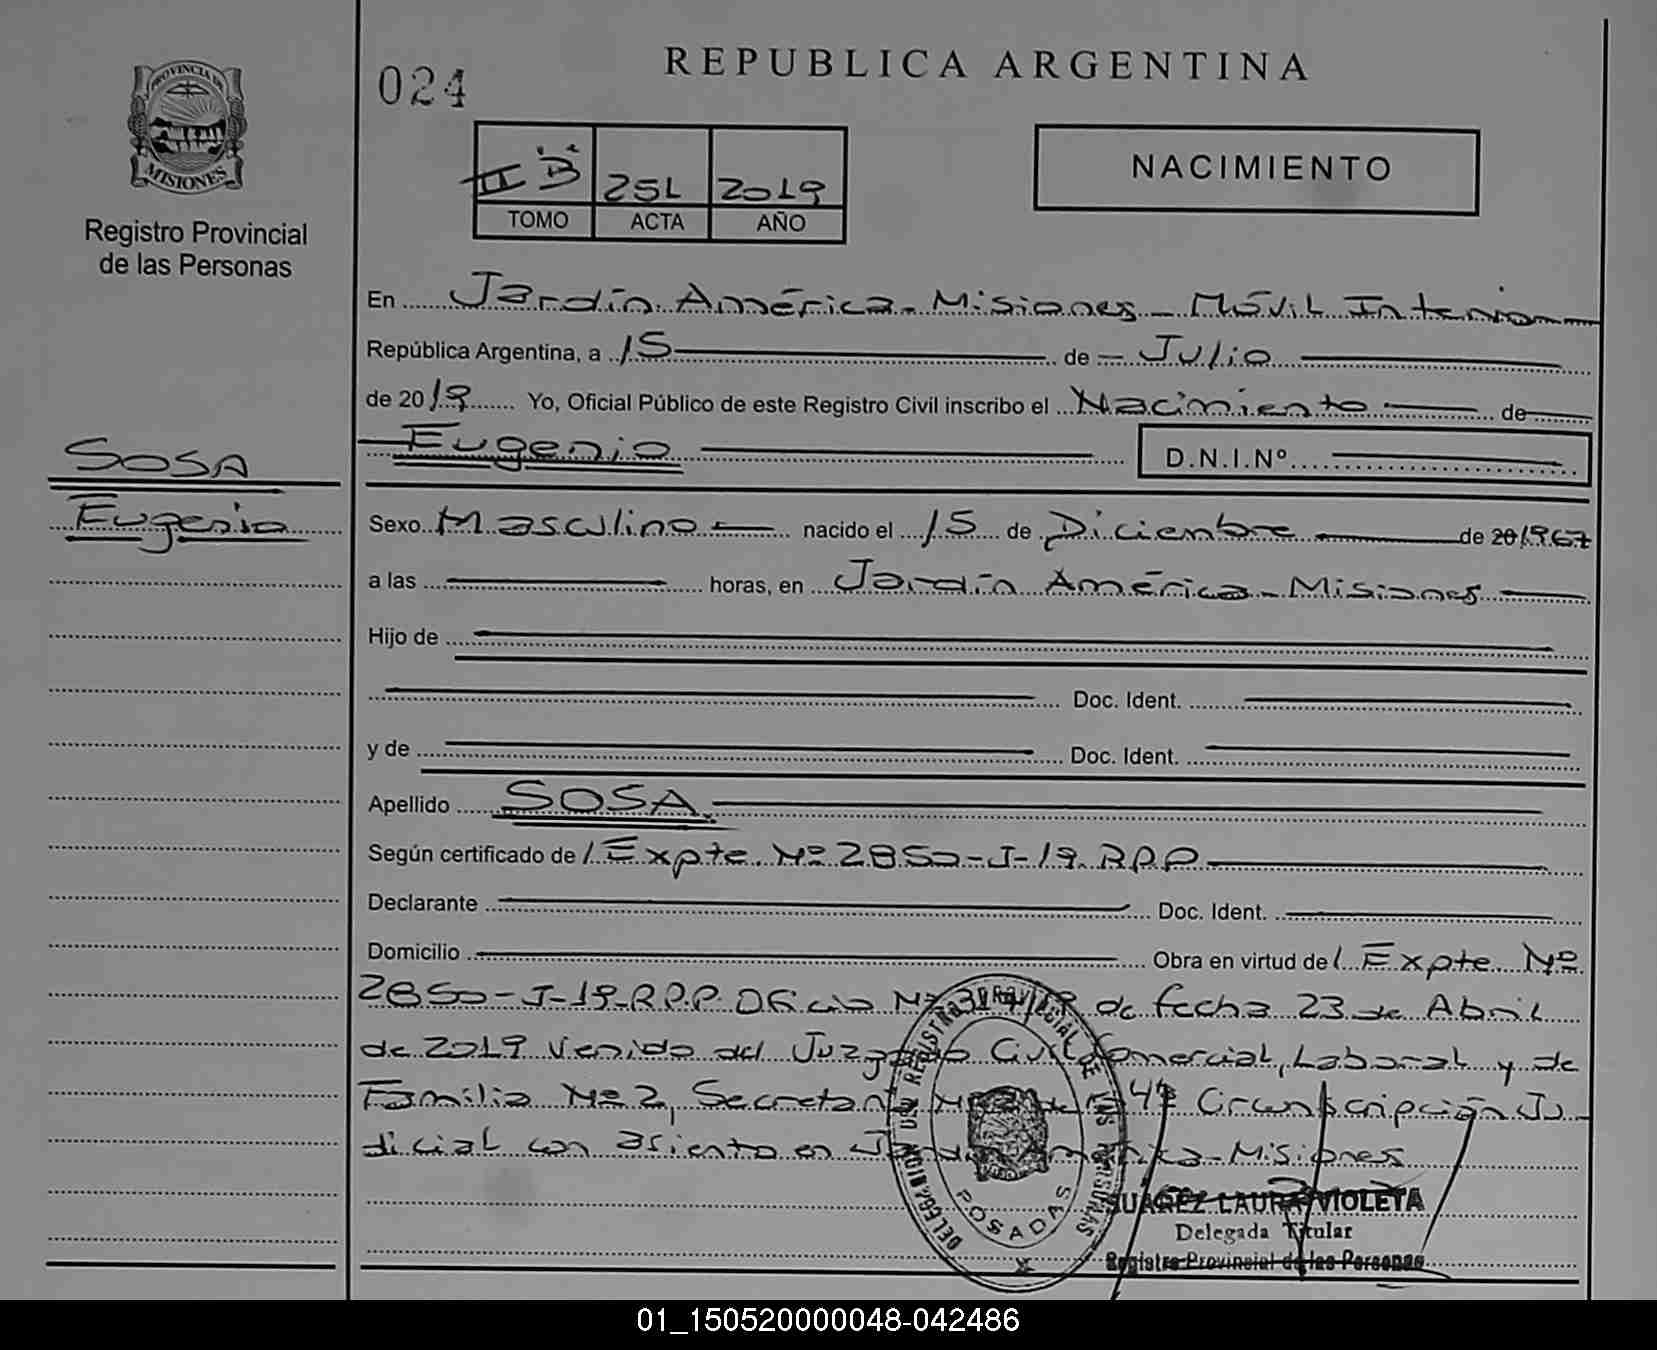 024
REPUBLICA ARGENTINA
PROVINCIA DE
MISIONES
Registro Provincial
de las Personas
II "B" 251 2019
TOMO ACTA AÑO
NACIMIENTO
En Jardín América - Misiones - Móvil Interior
República Argentina, a 15 de Julio
de 2019 Yo, Oficial Público de este Registro Civil inscribo el Nacimiento de
Eugenio D.N.I.Nº
SOSA
Eugenio
Sexo Masculino nacido el 15 de Diciembre de 20 1967
a las horas, en Jardín América - Misiones
Hijo de
Doc. Ident.
y de Doc. Ident.
Apellido SOSA.
Según certificado de / Expte. Nº 2850-J-19. RPP
Declarante Doc. Ident.
Domicilio Obra en virtud de / Expte Nº
2850-J-19-R.P.P. Oficio Nº de fecha 23 de Abril
de 2019 Venido del Juzgado Civil, Comercial, Laboral y de
Familia Nº 2, Secretaría de la 4ª Circunscripción Ju-
dicial con asiento en Jardín América - Misiones
DELEGACION DEL REGISTRO PROVINCIAL DE LAS PERSONAS
POSADAS
SUAREZ LAURA VIOLETA
Delegada Titular
Registro Provincial de las Personas
01_150520000048-042486